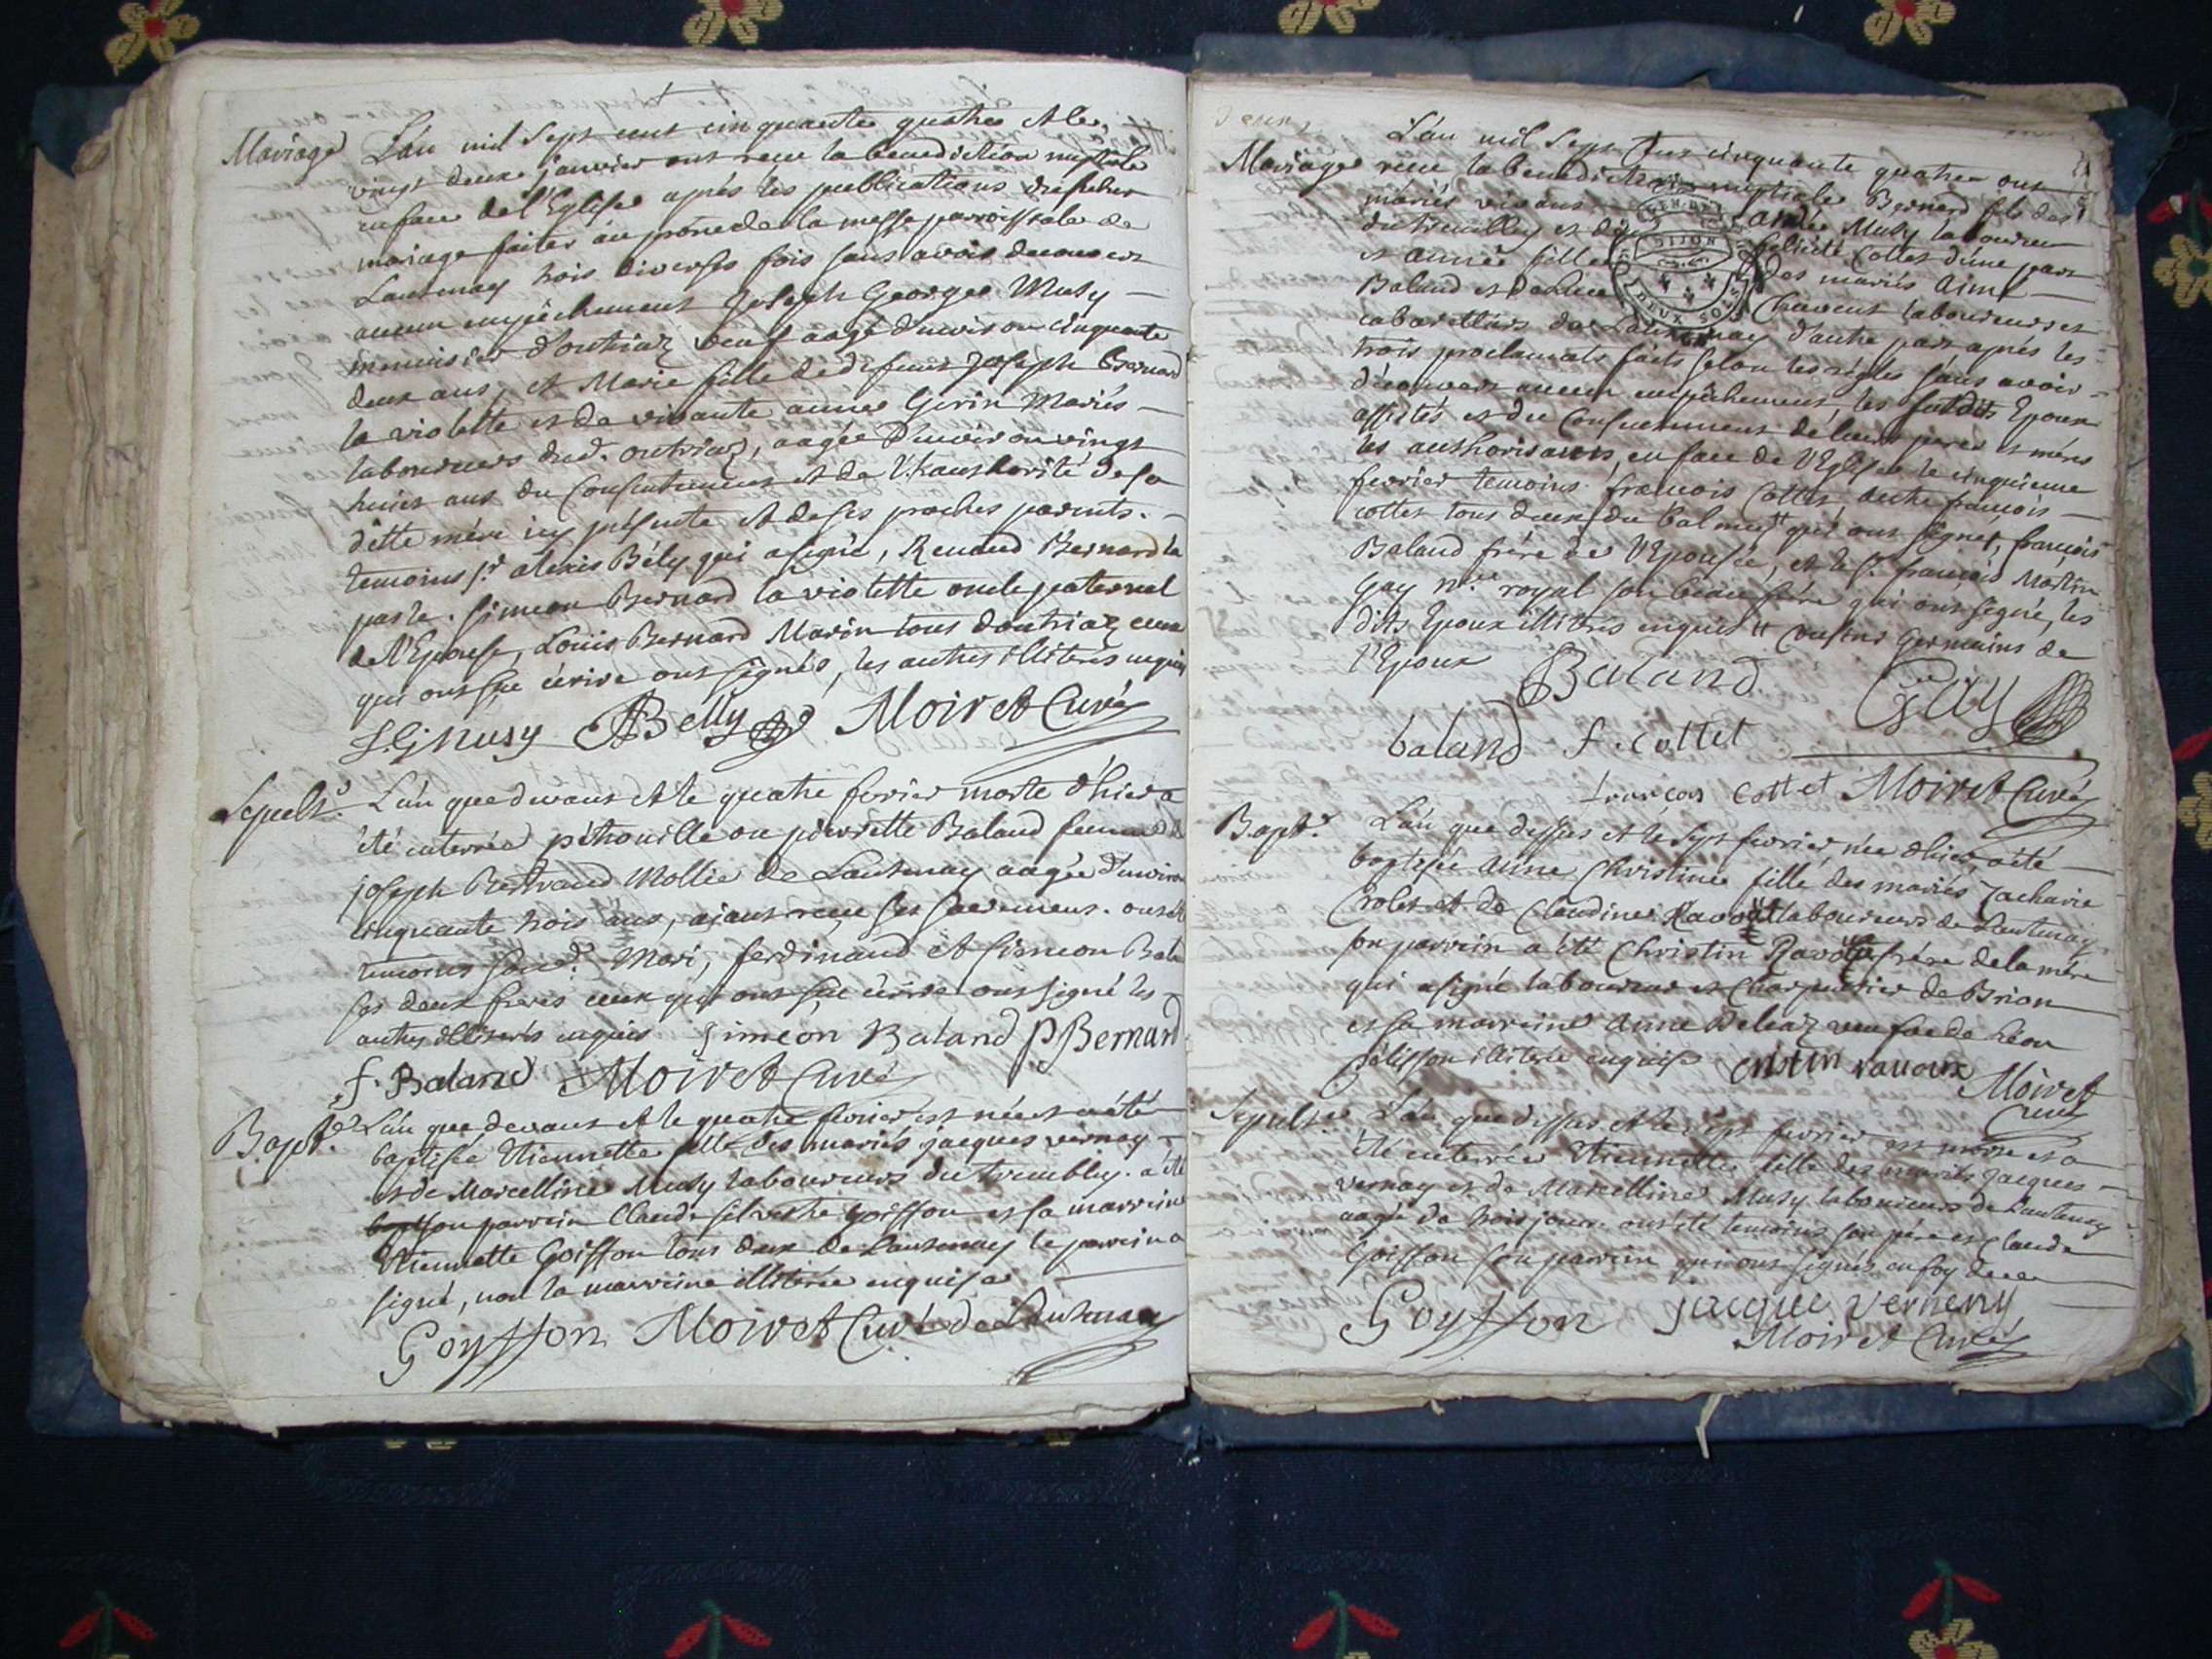 Mariage L'an mil sept cent cinquante quatre et le
vingt deux janvier ont reçu la benediction nuptiale
en face de l'Eglise après les publications de futur
mariage faites au prone de la messe parroissiale de
Lantenay trois diverses fois sans avoir decouvert
aucun empêchement Joseph George Musy
menuisier d'outriaz veuf aagé d'environ cinquante
deux ans, et Marie fille de defunt Joseph Bernard
la violette et de vivante anne Gerin Mariés
laboureurs dud. outriaz, aagée d'environ vingt
huit ans du Consentement et de l'authorité de sa
ditte mère icy présente et de ses proches parents.
temoins sr. alexis Bély qui a signé, Renaud Bernard la
paste. simeon Bernard la violette oncle paternel
de l'Epouse, Louis Bernard Marin tous d'outriaz ceux
qui ont sçu écrire ont signés, les autres illiterés enquis
J:G musy ABelly Moiret Curé
Sepult. L'an que devant et le quatre fevrier morte d'hier a
été enterrée pétrouille ou pierrette Baland femme de
joseph Bertrand Mollie de Lantenay aagée d'environ
cinquante trois ans, ajant reçu ses sacremens. ont été
temoins sond. Mari, ferdinand et simeon Bala
ses deux freres ceux qui ont sçu écrire ont signé les
autres illiterés enquis simeon Baland P Bernard
f. Baland Moiret Curé
Bapt. L'an que devant et le quatre fevrier est née et a été
baptisée Etiennette fille des mariés jacques vernay
et de Marcelline Musy laboureurs du tremblay. a été
son parrein Claude silvestre Goiffon et sa marreine
Etiennette Goiffon tous deux de Lantenay le parrein a
signé, non la marreine illiterée enquise
Goyffon Moiret Curé de Lantenay
L'an mil sept cent cinquante quatre ont
Mariage reçu la benediction nuptiale Bernard fils des
mariés vivans andré Musy laboureur
du tremblay et de felicité Collet d'une part
et aimée fille des mariés aimé
Baland et Chavent laboureurs et
cabarettiers de Lantenay d'autre part après les
trois proclamats faits selon les régles sans avoir
découvert aucun empêchement, les susdits Epoux
assistés et du Consentement de leurs peres et méres
les authorisants, en face de l'Eglise le cinquieme
fevrier temoins françois Collet, autre françois
collet tous deux du balmay qui ont signés, françois
Baland frére de l'Epousée, et le sr. françois Martin
Gay nre. royal son beau frére qui ont signé, les
dits Epoux illiterés enquis cousins Germains de
l'Epoux Baland Gay
baland f. collet
françois collet Moiret Curé
Bapt. L'an que dessus et le sept fevrier, née d'hier, a été
baptisée anne Christine fille des mariés Zacharie
Crolet et de Claudine Ravoux laboureurs de Lantenay
son parrein a été Christin Ravoux frére de la mére
qui a signé laboureur et Charpentier de Brion
et sa marreine anne Deleaz veufve de Léon
Pélisson illiterée enquise cristin ravoux Moiret
Curé
Sepult. L'an que dessus et le sept fevrier est morte et a
été enterrée Etiennette fille des mariés jacques
vernay et de Marcelline Musy laboureurs de Lantenay
aagée de trois jours. ont été temoins son pére et Claude
Goiffon son parrein qui ont signés en foy de ce
Goyffon jacque verneny
Moiret Curé